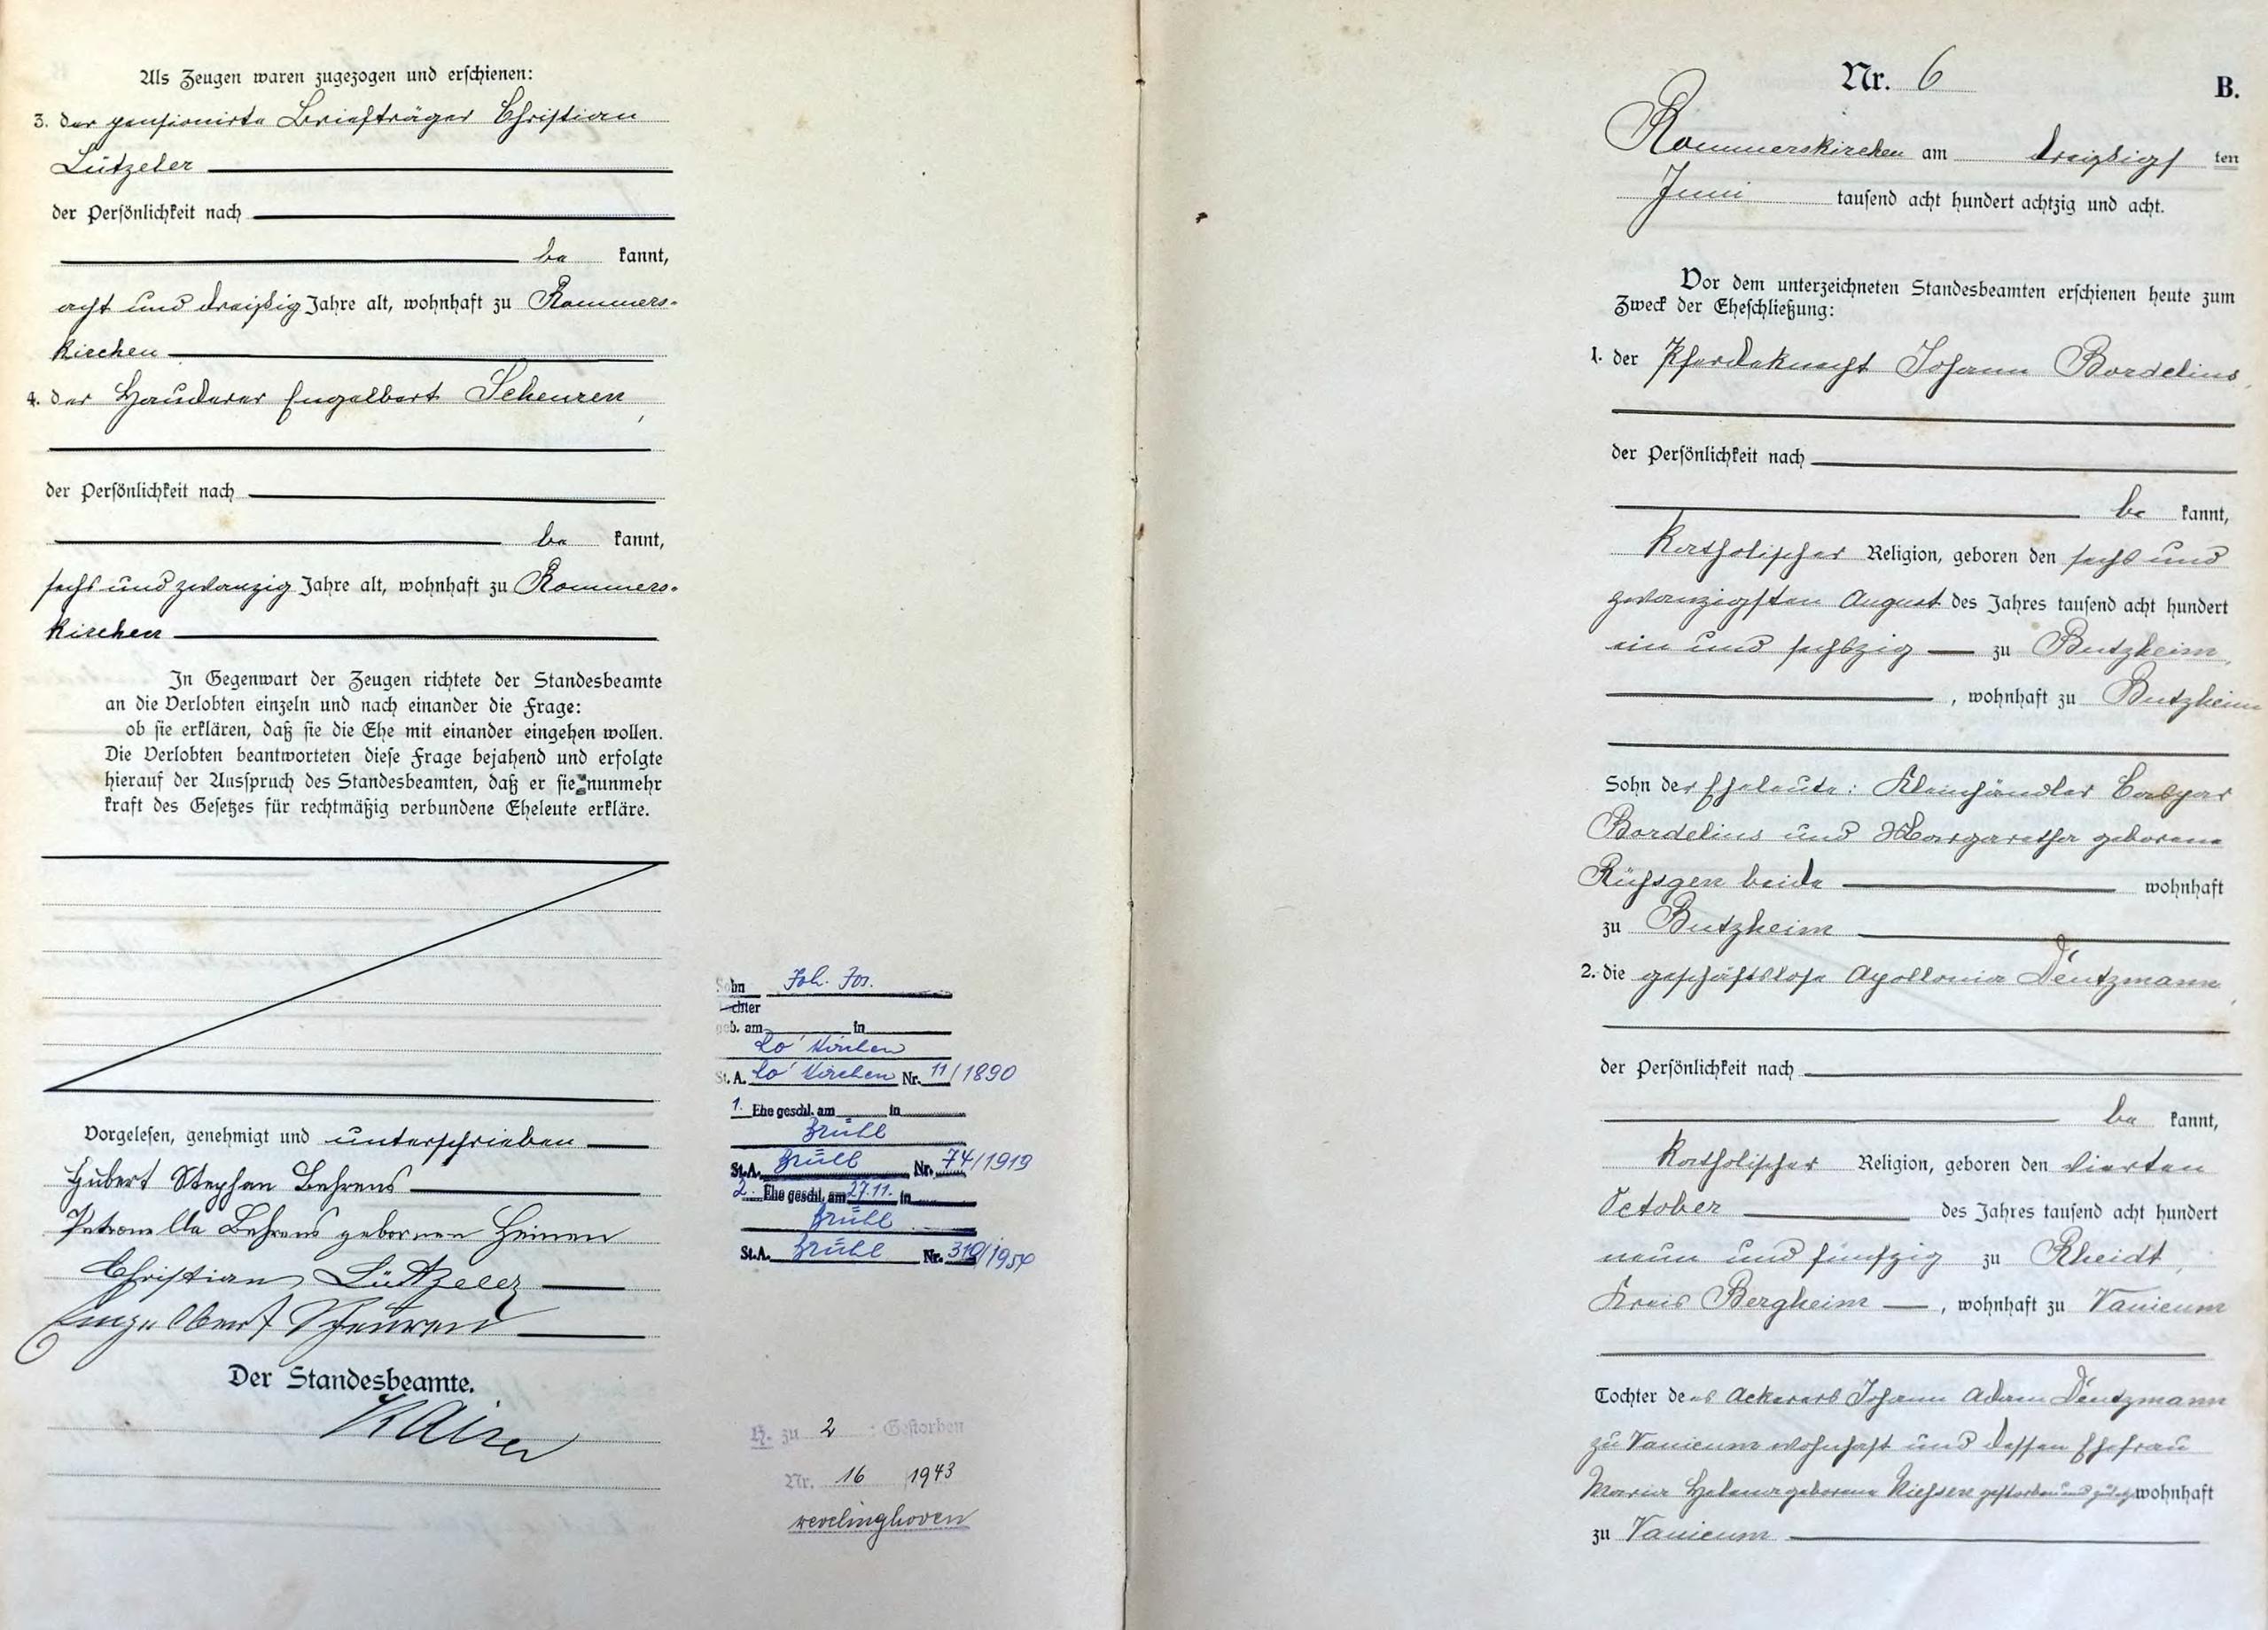 Als Zeugen waren zugezogen und erschienen:
3. der pensionirte Briefträger Christian
Lützeler
der Persönlichkeit nach
be kannt,
acht und dreißig Jahre alt, wohnhaft zu Rommers-
kirchen
4. der Hauderer Engelbert Scheuren,
der Persönlichkeit nach
be kannt,
sechs und zwanzig Jahre alt, wohnhaft zu Rommers-
kirchen
In Gegenwart der Zeugen richtete der Standesbeamte
an die Verlobten einzeln und nach einander die Frage:
ob sie erklären, daß sie die Ehe mit einander eingehen wollen.
Die Verlobten beantworteten diese Frage bejahend und erfolgte
hierauf der Ausspruch des Standesbeamten, daß er sie nunmehr
kraft des Gesetzes für rechtmäßig verbundene Eheleute erkläre.
Vorgelesen, genehmigt und unterschrieben
Hubert Stephan Behrens
Petronella Behrens geborenen Heinen
Christian Lützeler
Engelbert Scheuren
Der Standesbeamte.
Kaiser
Sohn Joh. Jos.
Tochter
geb. am in
Ro'kirchen
St. A. Ro'kirchen Nr. 11/1890
1. Ehe geschl. am in
Brühl
St.A. Brühl Nr. 74/1919
2. Ehe geschl. am 27.11. in
Brühl
St.A. Brühl Nr. 310/1954
H. zu 2 : Gestorben
Nr. 16 1943
wevelinghoven
Nr. 6
B.
Rommerskirchen am dreißigs ten
Juni tausend acht hundert achtzig und acht.
Vor dem unterzeichneten Standesbeamten erschienen heute zum
Zweck der Eheschließung:
1. der Pferdeknecht Johann Bordelius,
der Persönlichkeit nach
be kannt,
katholischer Religion, geboren den sechs und
zwanzigsten August des Jahres tausend acht hundert
ein und sechszig zu Butzheim,
, wohnhaft zu Butzheim
Sohn der Eheleute: Kleinhändler Caspar
Bordelius und Margaretha geborene
Rühsgen beide wohnhaft
zu Butzheim
2. die geschäftslose Apollonia Deutzmann,
der Persönlichkeit nach
be kannt,
katholischer Religion, geboren den vierten
October des Jahres tausend acht hundert
neun und fünfzig zu Rheidt,
Kreis Bergheim , wohnhaft zu Vanicum
Tochter des Ackerers Johann Adam Deutzmann
zu Vanicum wohnhaft und dessen Ehefrau
Maria Helena geborene Niehsen gestorben und zuletzt wohnhaft
zu Vanicum